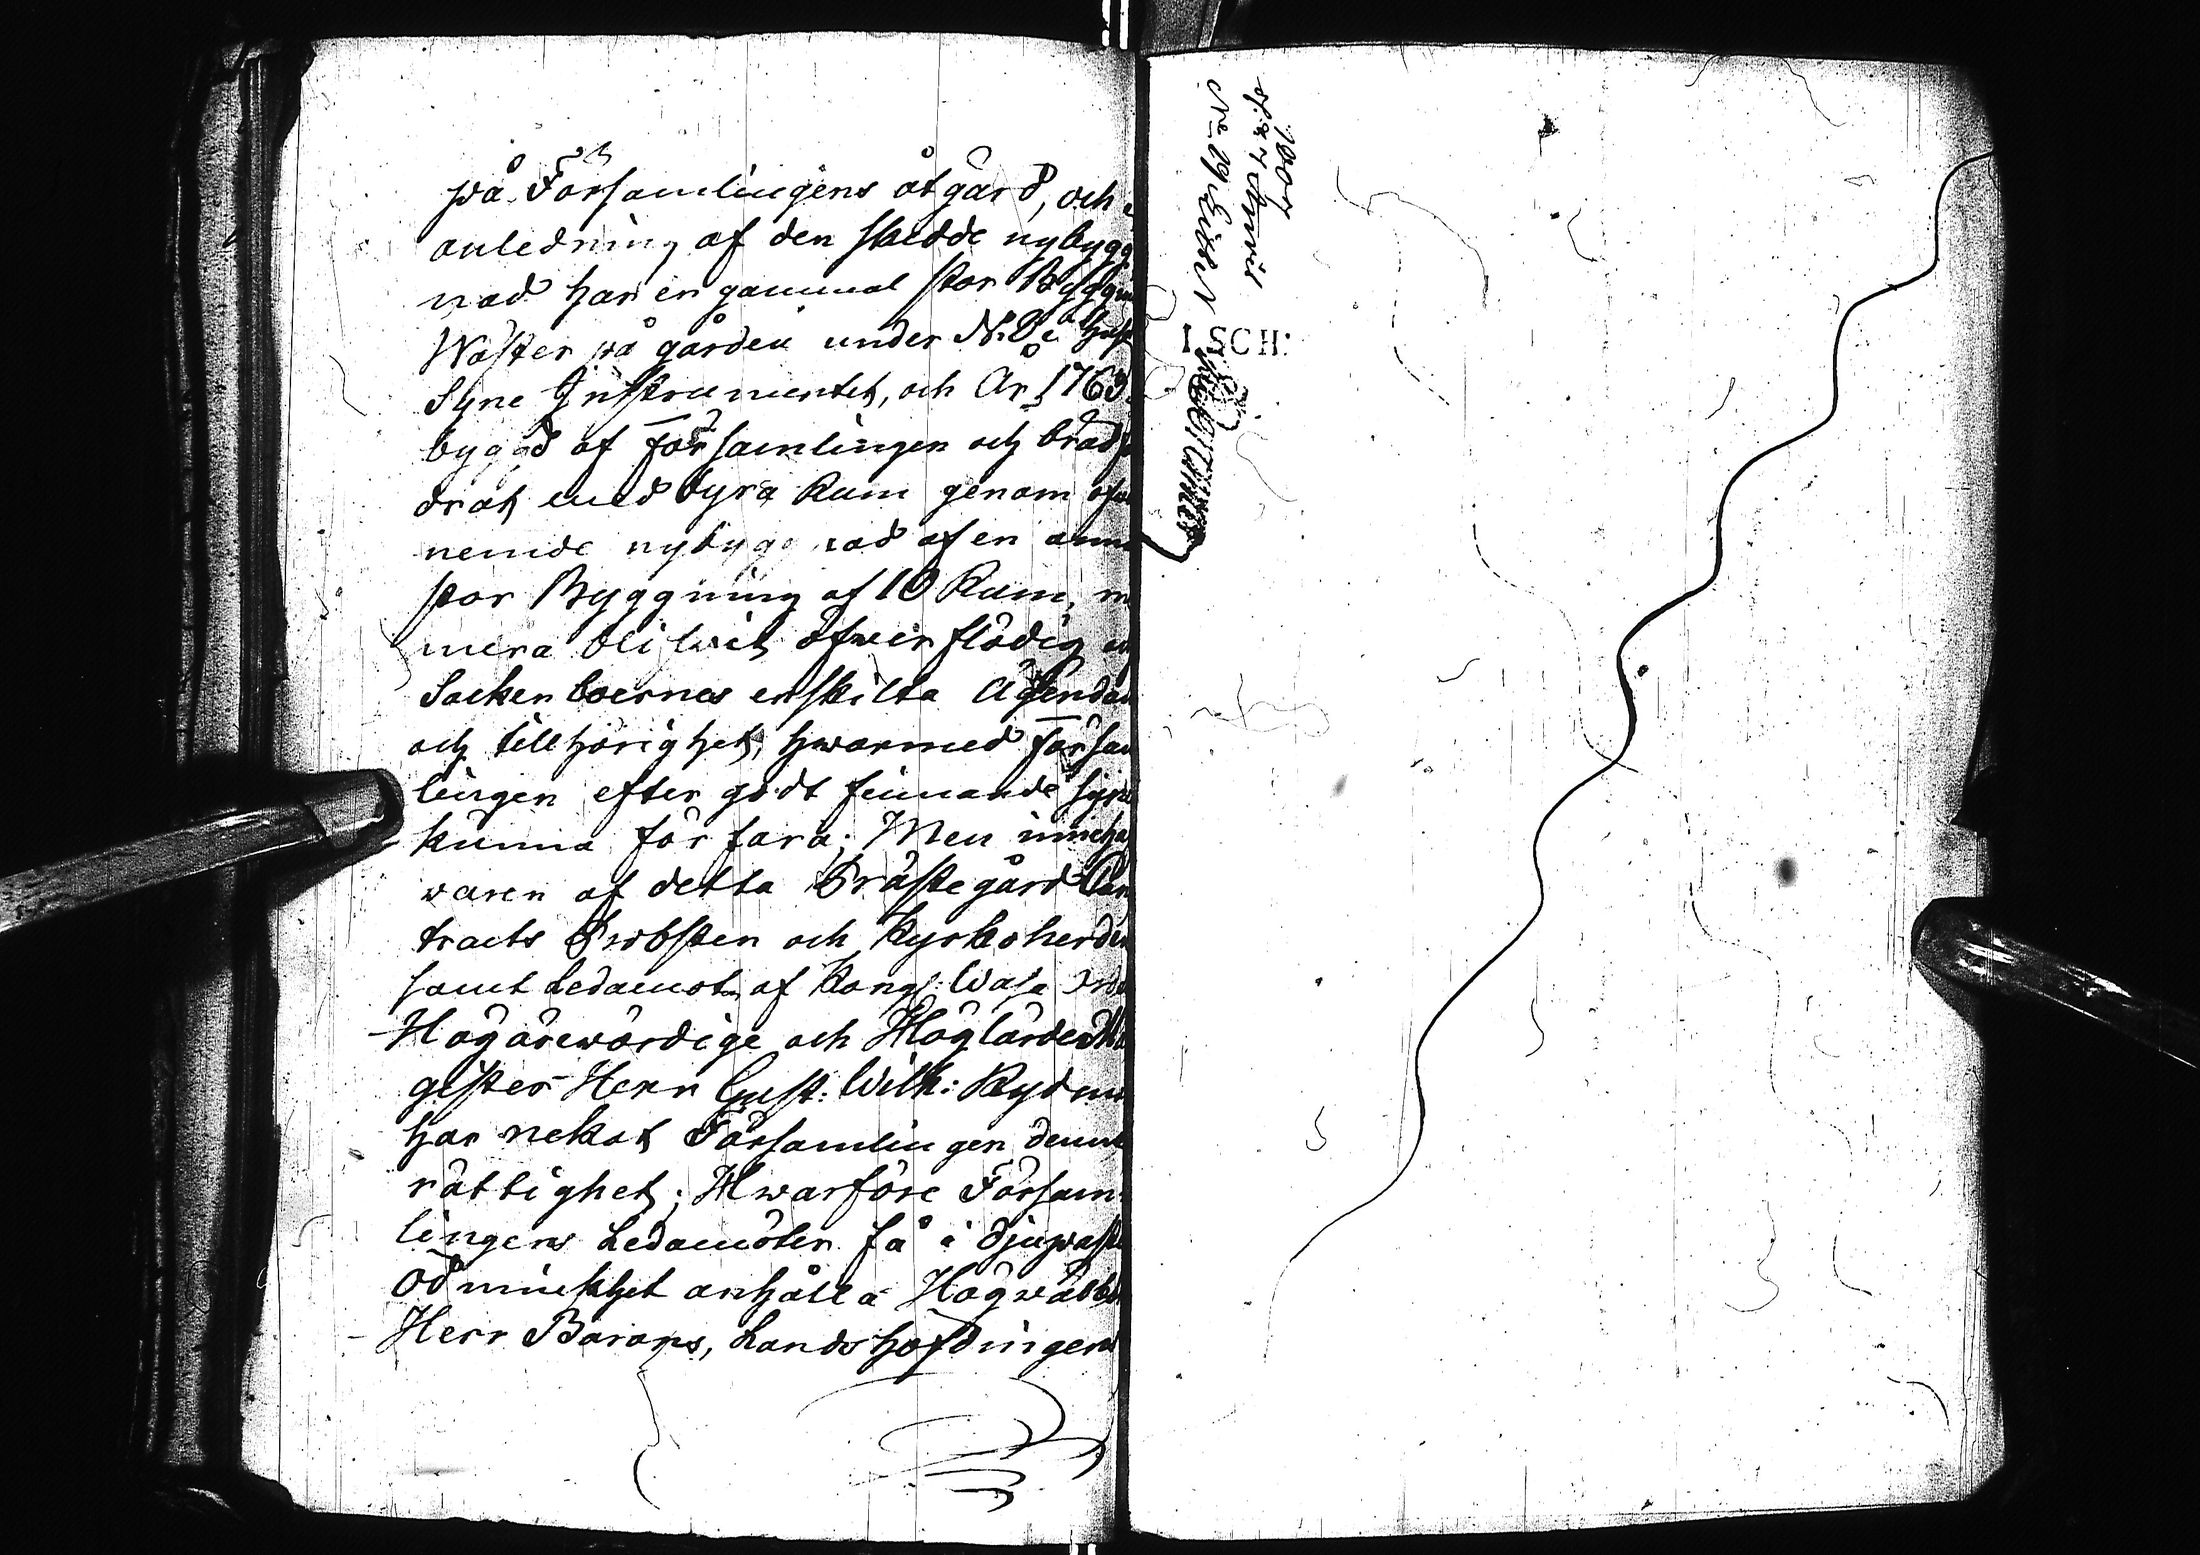 på Församlingens åtgärd, och
anledning af den skedde nybygg
nad har en gammal stor Byggni
Wäster på gården under N:o 2 i
Syne Instrumentet, och År 1763
bygd af församlingen och bräd
drät med fyra Rum genom ofwa
nemde nybyggnad af en anna
stor Byggning af 10 Rum, nu
mera bli wit öfwerflödig
Socken boernes enskilta Ägendom
och tillhörighet, hwarmed försam
lingen efter godt finnande syn
kunna förfara; Men inneha
waren af detta Prästegård Con
tracts Probsten och Kyrkoherden
samt Ledamot af Kongl: Wasa Ord
Högärewördige och Höglärde Ma
gister Herr Gust: Wilh: Rydm
har nekat Församlingen denna
rättighet; Hwarföre Försam
lingens Ledamöter få i djupaste
Ödmiukhet anhålla Högwälb
Herr Barons, Landshöfdingens
I SCH: